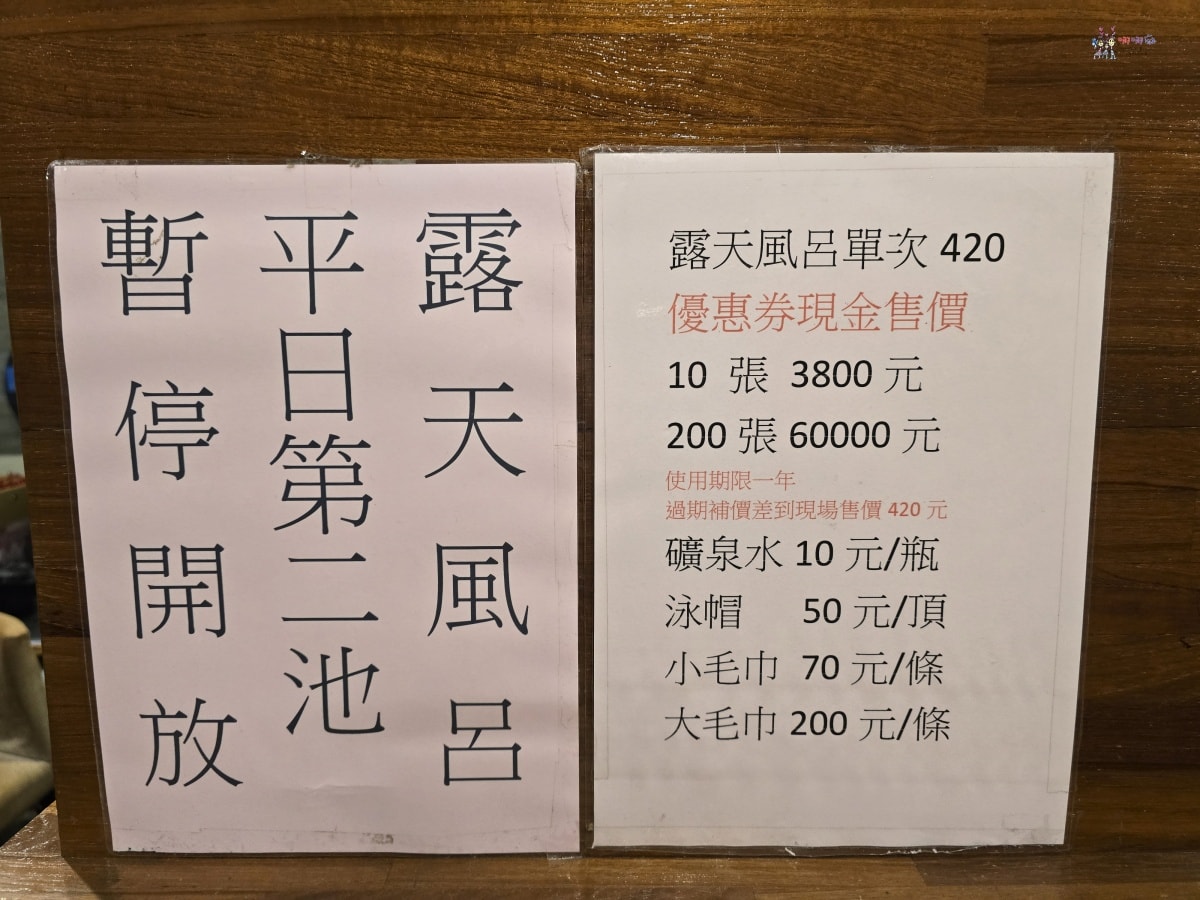 露天風呂
平日第二池
暫停開放
露天風呂單次 420
優惠券現金售價
10 張 3800 元
200 張 60000 元
使用期限一年
過期補價差到現場售價 420 元
礦泉水 10 元/瓶
泳帽 50 元/頂
小毛巾 70 元/條
大毛巾 200 元/條